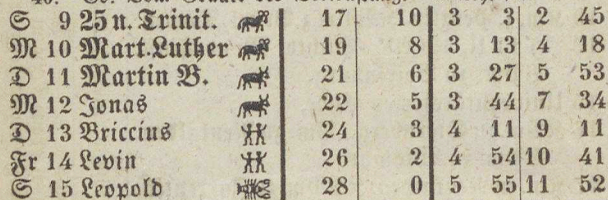 S 9 25 n. Trinit. 17 10 3 3 2 45
M 10 Mart. Luther 19 8 3 13 4 18
D 11 Martin B. 21 6 3 27 5 53
M 12 Jonas 22 5 3 44 7 34
D 13 Briccius 24 3 4 11 9 11
Fr 14 Levin 26 2 4 54 10 41
S 15 Leopold 28 0 5 55 11 52